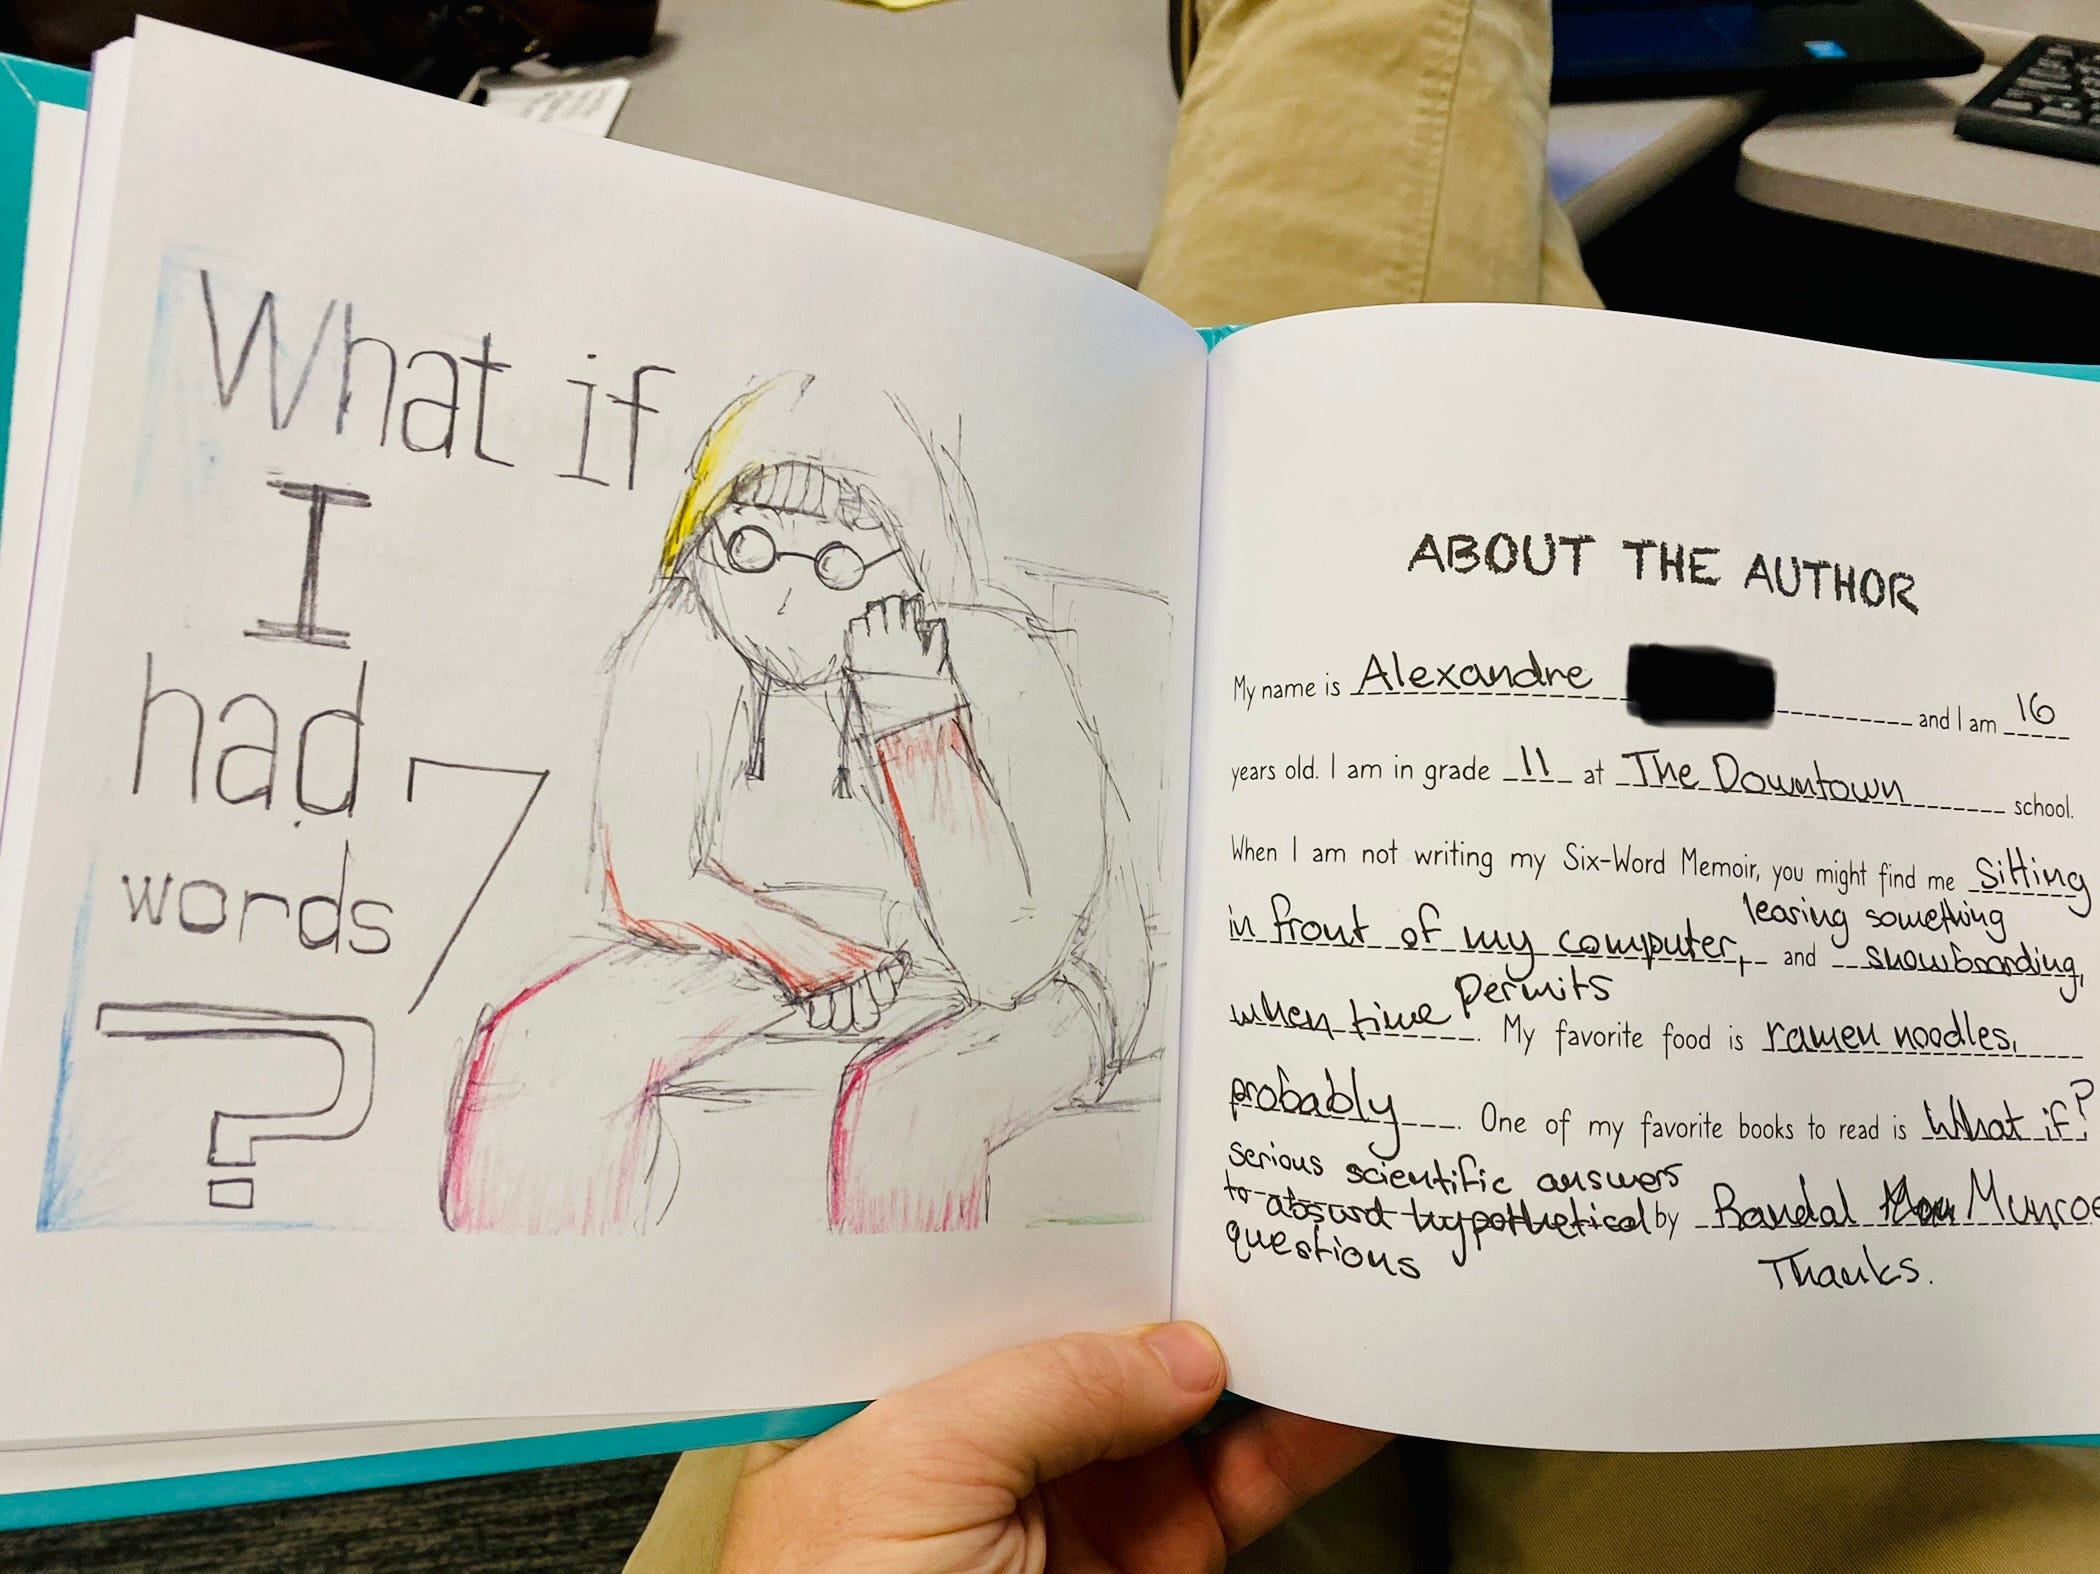 What if
I
had
7
words
?
ABOUT THE AUTHOR
My name is Alexandre and I am 16
years old. I am in grade 11 at The Downtown school.
When I am not writing my Six-Word Memoir, you might find me sitting
in front of my computer, learing something and snowboarding,
when time permits. My favorite food is ramen noodles,
probably. One of my favorite books to read is What if?
serious scientific answers
to absurd hypothetical by Randal Munroe
questions
Thanks.